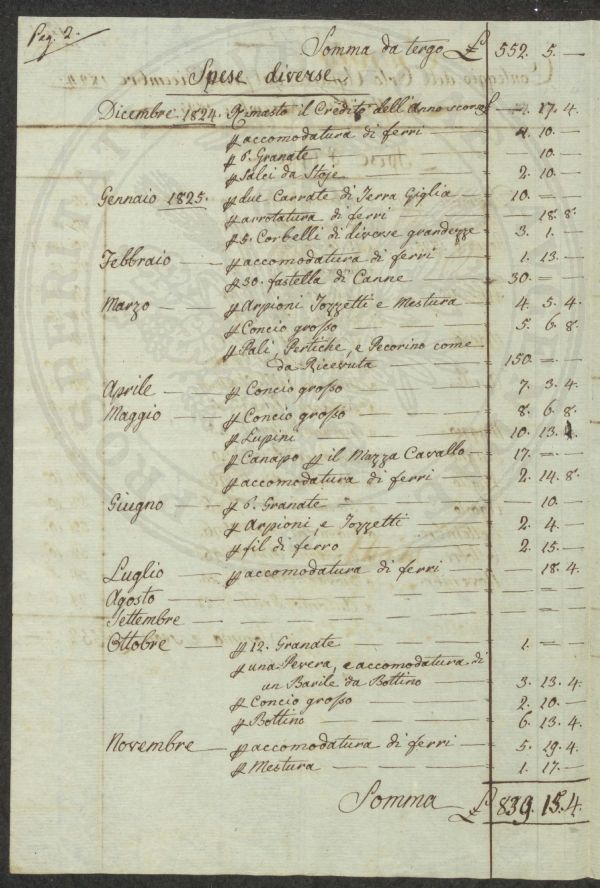 Pag. 2.
Somma da tergo £ 552. 5. —
Spese diverse.
Dicembre 1824. Rimasto il Credito dell'Anno scorso £ —. 17. 4.
p accomodatura di ferri — 4. 10. —
p 6. Granate — 10. —
p Salci da Stoje — 2. 10. —
Gennaio 1825. p due Carrate di Terra Giglia — 10. — —
p arrotatura di ferri — 18. 8.
p 5. Corbelli di diverse grandezze — 3. 1. —
Febbraio — p accomodatura di ferri — 1. 13. —
p 30. fastella di Canne — 30. — —
Marzo — p Arpioni Tozzetti e Mestura — 4. 5. 4.
p Concio grosso — 5. 6. 8.
p Pali, Pertiche, e Pecorino come
da Ricevuta — 150. — —
Aprile — p Concio grosso — 7. 3. 4.
Maggio — p Concio grosso — 8. 6. 8.
p Lupini — 10. 13.
p Canapo p il Mazza Cavallo — 17. — —
p accomodatura di ferri — 2. 14. 8.
Giugno — p 6. Granate — 10. —
p Arpioni, e Tozzetti — 2. 4. —
p fil di ferro — 2. 15. —
Luglio — p accomodatura di ferri — 18. 4.
Agosto — — — —
Settembre — — — —
Ottobre — p 12. Granate — 1. — —
p una Pevera, e accomodatura di
un Barile da Bottino — 3. 13. 4.
p Concio grosso — 2. 10. —
p Bottino — 6. 13. 4.
Novembre — p accomodatura di ferri — 5. 19. 4.
p Mestura — 1. 17. —
Somma £ 839. 15. 4.